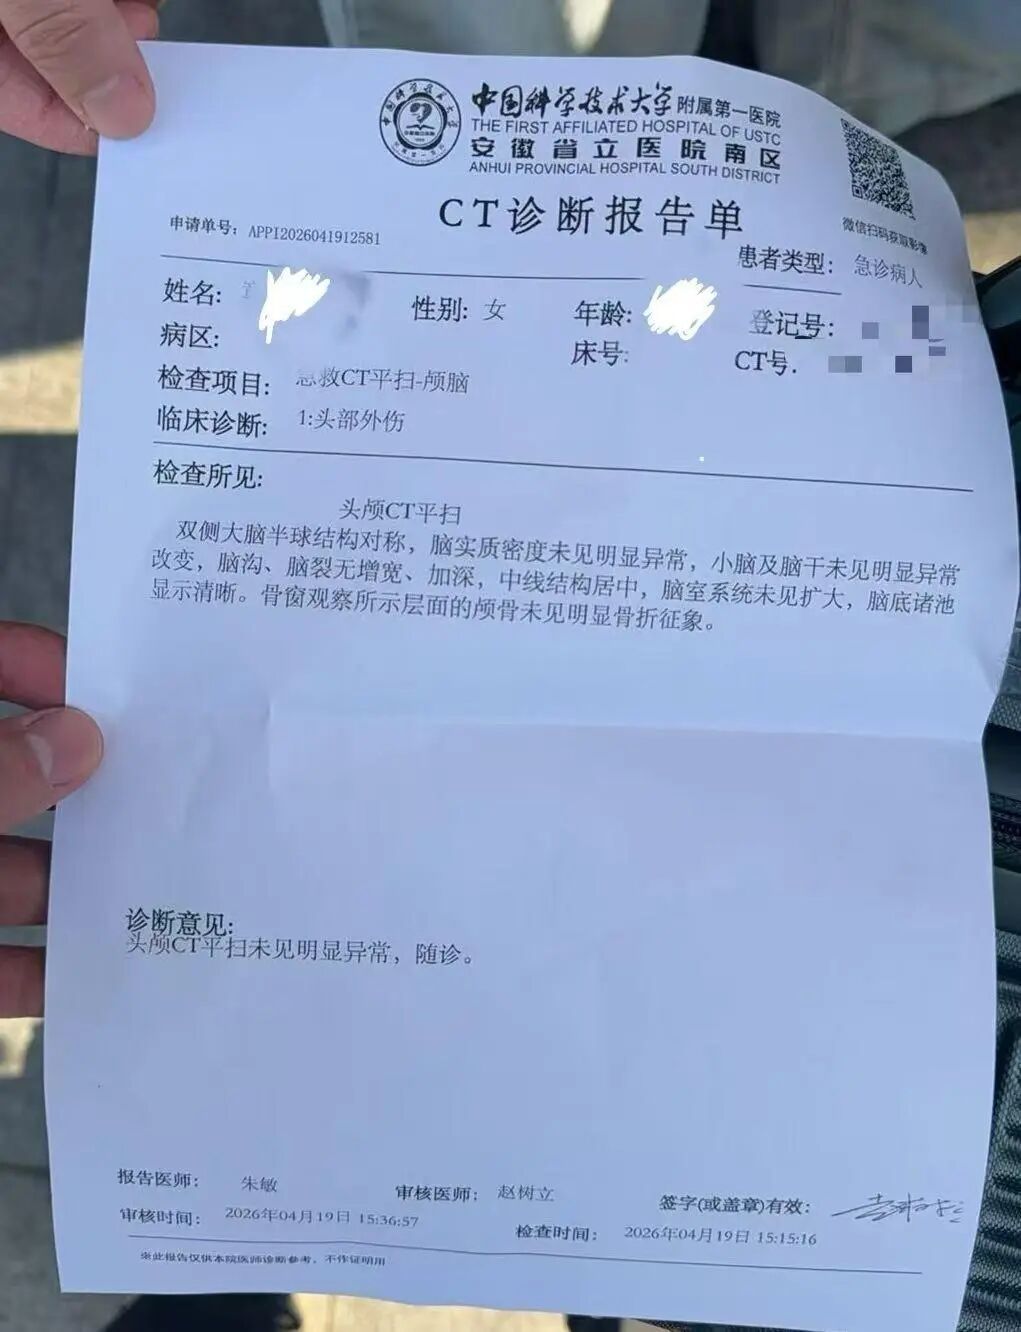 中国科学技术大学附属第一医院
THE FIRST AFFILIATED HOSPITAL OF USTC
安徽省立医院南区
ANHUI PROVINCIAL HOSPITAL SOUTH DISTRICT
CT诊断报告单
微信扫码获取影像
申请单号: APPI2026041912581
患者类型: 急诊病人
姓名: 性别: 女 年龄: 登记号:
病区: 床号: CT号.
检查项目: 急救CT平扫-颅脑
临床诊断: 1:头部外伤
检查所见:
头颅CT平扫
双侧大脑半球结构对称，脑实质密度未见明显异常，小脑及脑干未见明显异常
改变，脑沟、脑裂无增宽、加深，中线结构居中，脑室系统未见扩大，脑底诸池
显示清晰。骨窗观察所示层面的颅骨未见明显骨折征象。
诊断意见:
头颅CT平扫未见明显异常，随诊。
报告医师: 朱敏 审核医师: 赵树立 签字(或盖章)有效:
审核时间: 2026年04月19日 15:36:57 检查时间: 2026年04月19日 15:15:16
※此报告仅供本院医师诊断参考，不作证明用